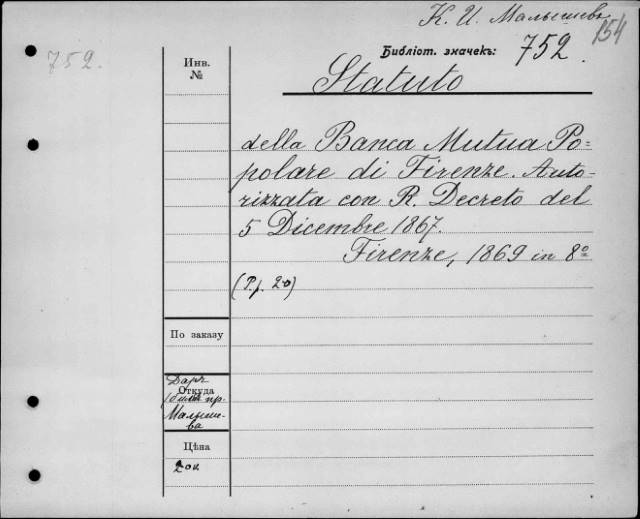 К. И. Малышевъ
154
752.
Библіот. значекъ: 752
Инв.
№
Statuto
della Banca Mutua Po=
polare di Firenze. Auto-
rizzata con R. Decreto del
5 Dicembre 1867.
Firenze, 1869 in 8º
(P.p. 20)
По заказу
Даръ
Откуда
пр.
Малыше-
ва
Цѣна
20к